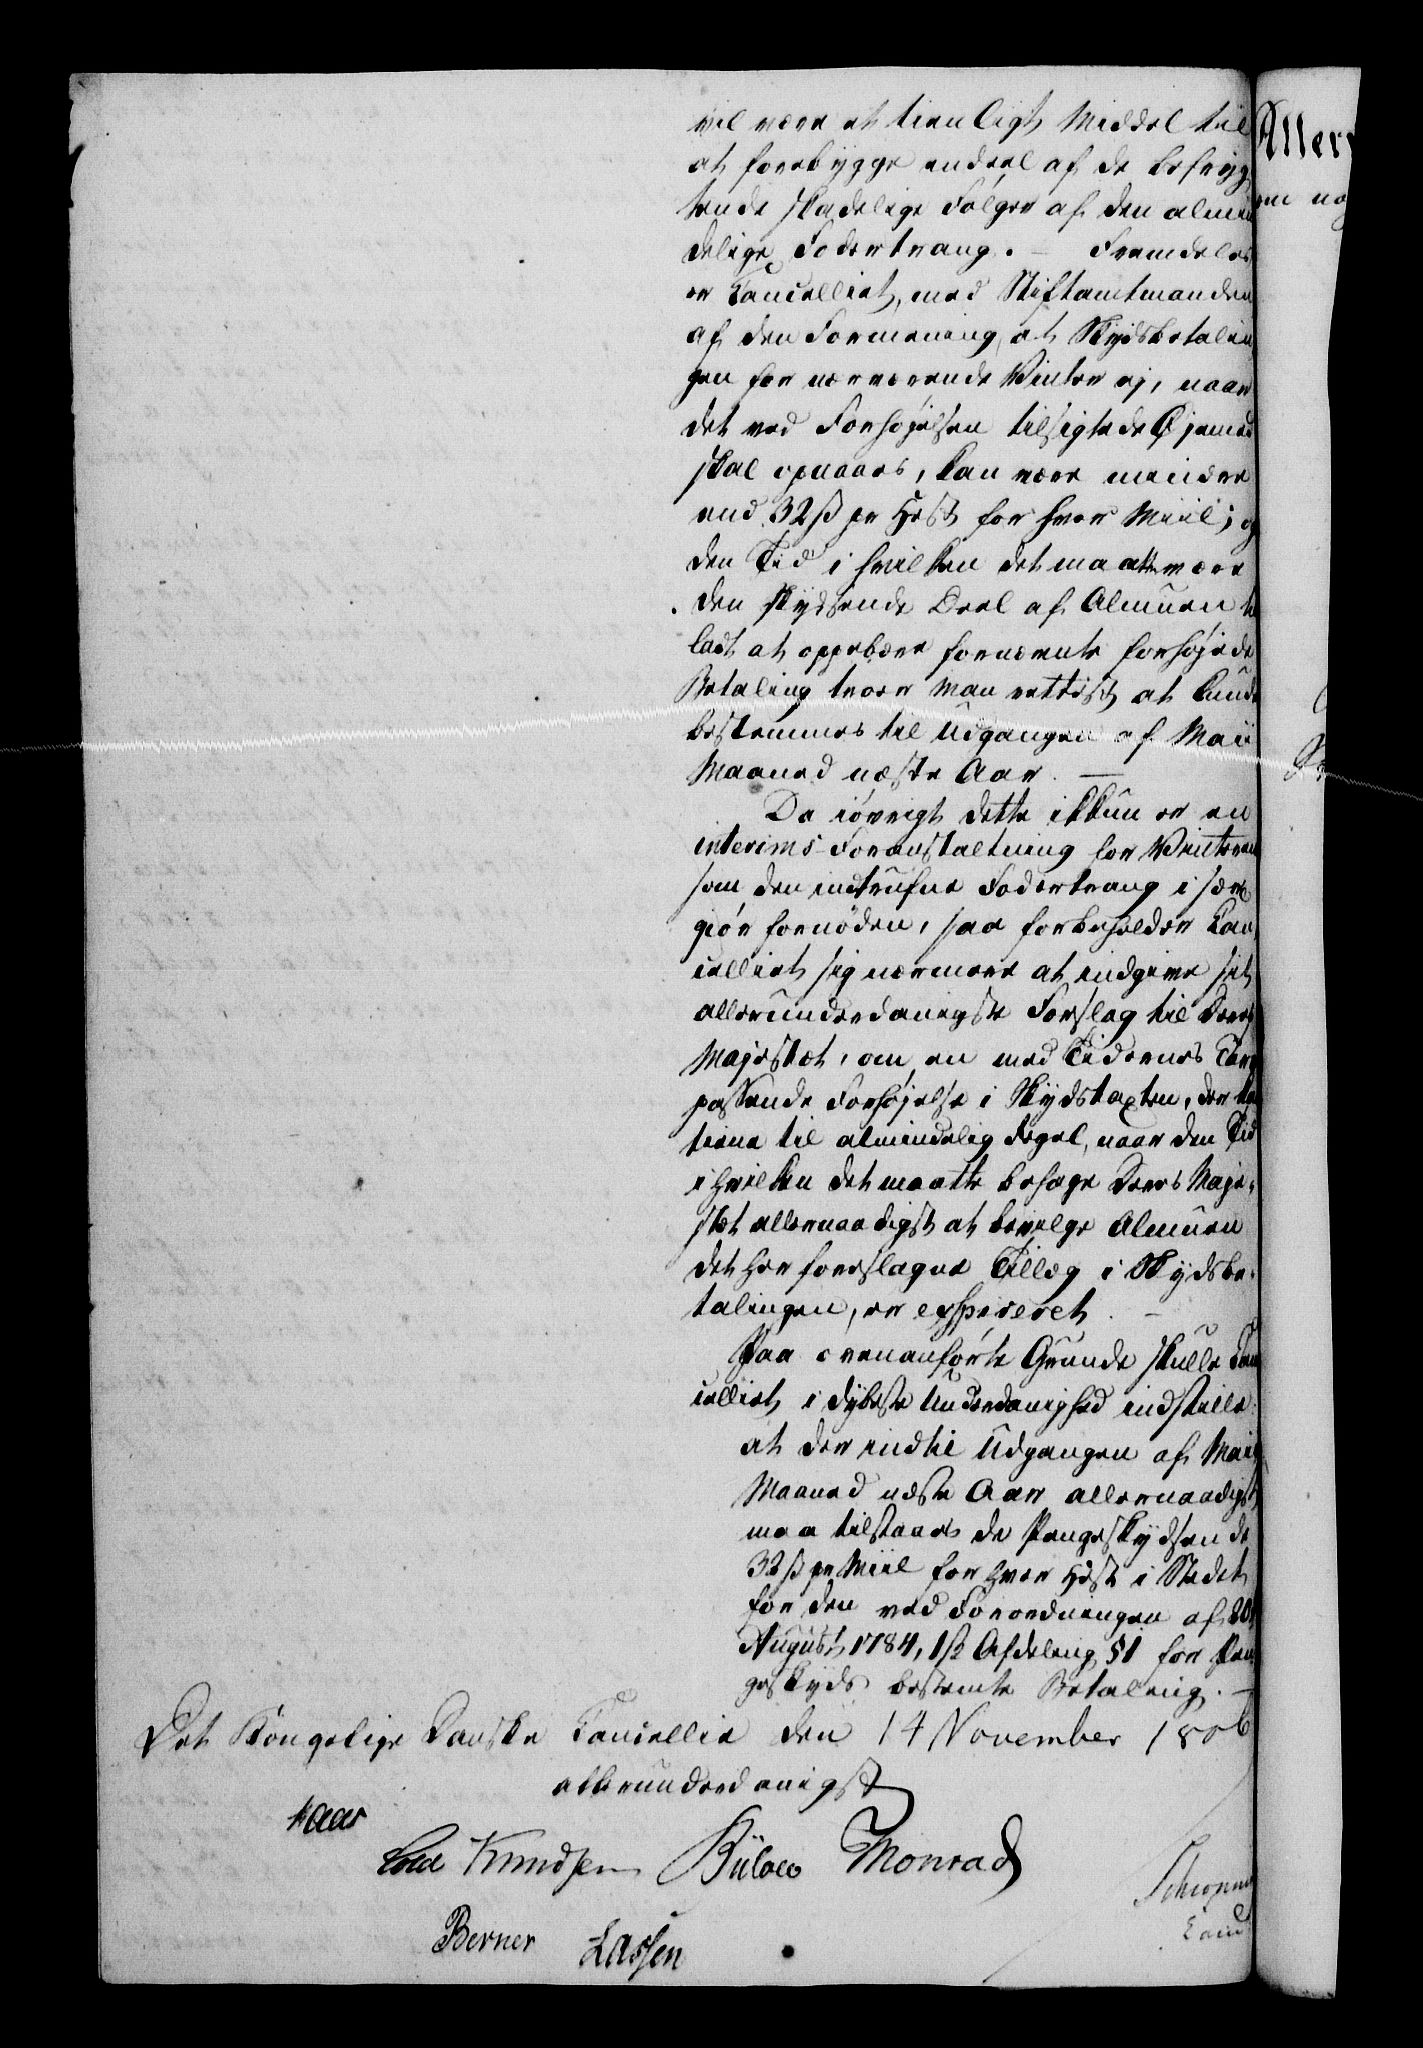 vil være et tienligt Middel til
at forebygge endeel af de befryg
tende skadelige Følger af den almin
delige Fodertrang. — Fremdeles
er Cancelliet, med Stiftamtmanden
af den Formening, at Skydsbetalin
gen for nærværende Vinter ej, naar
det ved Forhøjelsen tilsigtede Øjemed
skal opnaaes, kan være mindre
end 32 ß pr Hest for hver Miil; og
den Tid i hvilken det maatte være
den skydsende Deel af Almuen til
ladt at oppebære fornævnte forhøjede
Betaling troer man rettest at kunde
bestemmes til Udgangen af Maii
Maaned næste Aar. —
Da iøvrigt dette ikkun er en
interims Foranstaltning for Vinteren
som den indtrufne Fodertrang i sær
giør fornøden, saa forbeholder Can
celliet sig nærmere at indgive sit
allerunderdanigste Forslag til Deres
Majestæt, om en med Tidernes Tarv
passende Forhøjelse i Skydstaxten, der kan
tiene til almindelig Regel, naar den Tid
i hvilken det maatte behage Deres Maje-
stæt allernaadigst at bevilge Almuen
det her foreslagne Tillæg i Skydsbe-
talingen, er exspireret. —
Paa ovenanførte Grunde skulle Can
celliet i dybeste Underdanighed indstille:
at der indtil Udgangen af Maii
Maaned næste Aar allernaadigst
maa tilstaaes de Pengeskydsende
32 ß pr Miil for hver Hest i Stedet
for den ved Forordningen af 20
August 1784, 1ste Afdeling § 1 for Pen
geskyds bestemte Betaling. —
Det Kongelige Danske Cancellie den 14 November 1806
allerunderdanigst
Kaas
Cold Knudsen Bülow Monrad
Berner Lassen
Aller
om nog